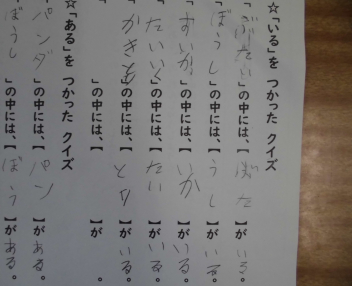 ☆「いる」を つかった クイズ
「ぶたい」の中には、【ぶた】が いる。
「ぼうし」の中には、【うし】が いる。
「すいか」の中には、【いか】が いる。
「たいいく」の中には、【たい】が いる。
「かきとり」の中には、【とり】が いる。
「 」の中には、【 】が 。
☆「ある」を つかった クイズ
「パンダ」の中には、【パン】が ある。
「ぼうし」の中には、【ぼう】が ある。